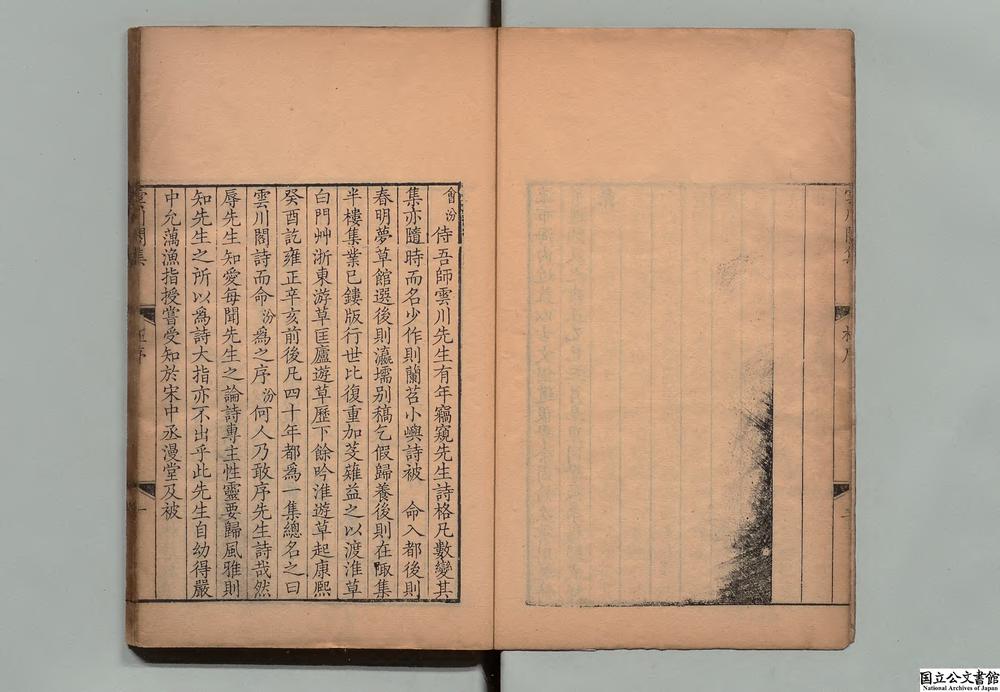 會汾侍吾師雲川先生有年竊窺先生詩格凡數變其
集亦隨時而名少作則蘭苕小嶼詩被 命入都後則
春明夢草館選後則瀛壖别稿乞假歸養後則在陬集
半樓集業已鏤版行世比復重加芟薙益之以渡淮草
白門艸浙東游草匡廬遊草歷下餘吟淮遊草起康熙
癸酉訖雍正辛亥前後凡四十年都爲一集總名之曰
雲川閣詩而命汾爲之序汾何人乃敢序先生詩哉然
辱先生知愛每聞先生之論詩專主性靈要歸風雅則
知先生之所以爲詩大指亦不出乎此先生自幼得嚴
中允藕漁指授嘗受知於宋中丞漫堂及被
雲川閣集
序
一
国立公文書館
National Archives of Japan